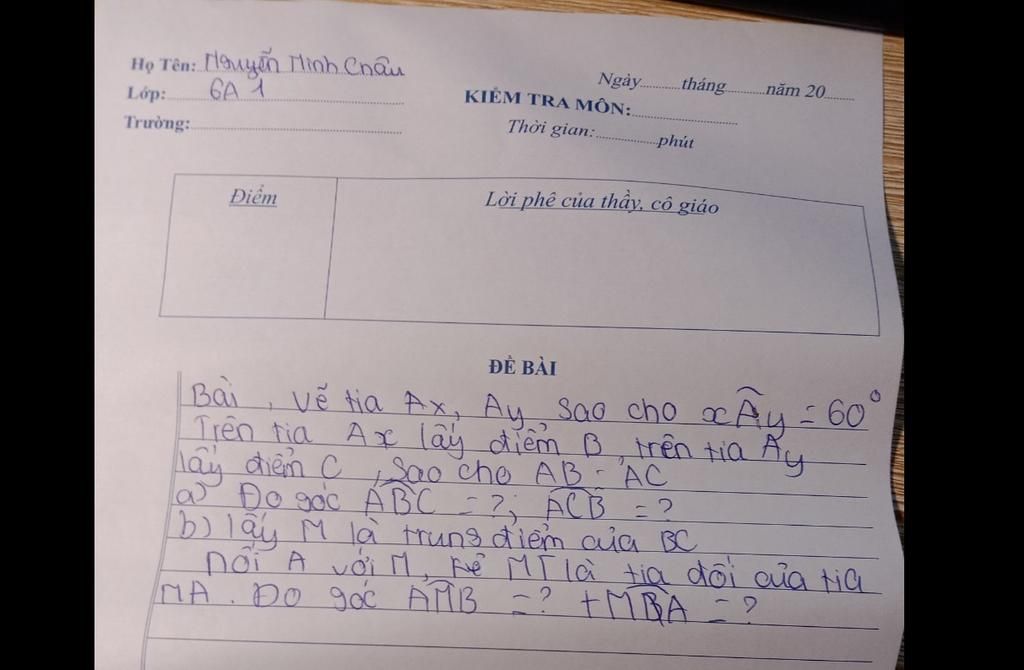 Họ Tên: Nguyễn Minh Châu
Lớp: 6A1
Trường:
Ngày............tháng............năm 20.........
KIỂM TRA MÔN:
Thời gian:...................phút
Điểm
Lời phê của thầy, cô giáo
ĐỀ BÀI
Bài , vẽ tia Ax, Ay sao cho xÂy = 60°
Trên tia Ax lấy điểm B, trên tia Ay
lấy điểm C, sao cho AB = AC
a) Đo góc ABC = ?; ACB = ?
b) lấy M là trung điểm của BC
nối A với M, kẻ MT là tia đối của tia
MA. Đo góc AMB = ?